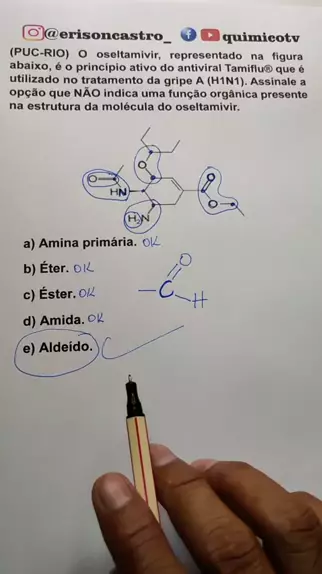 @erisoncastro_ quimicotv
(PUC-RIO) O oseltamivir, representado na figura
abaixo, é o princípio ativo do antiviral Tamiflu® que é
utilizado no tratamento da gripe A (H1N1). Assinale a
opção que NÃO indica uma função orgânica presente
na estrutura da molécula do oseltamivir.
O
O
O
HN
O
H₂N
a) Amina primária. OK
b) Éter. OK
O
c) Éster. OK
C
H
d) Amida. OK
e) Aldeído.